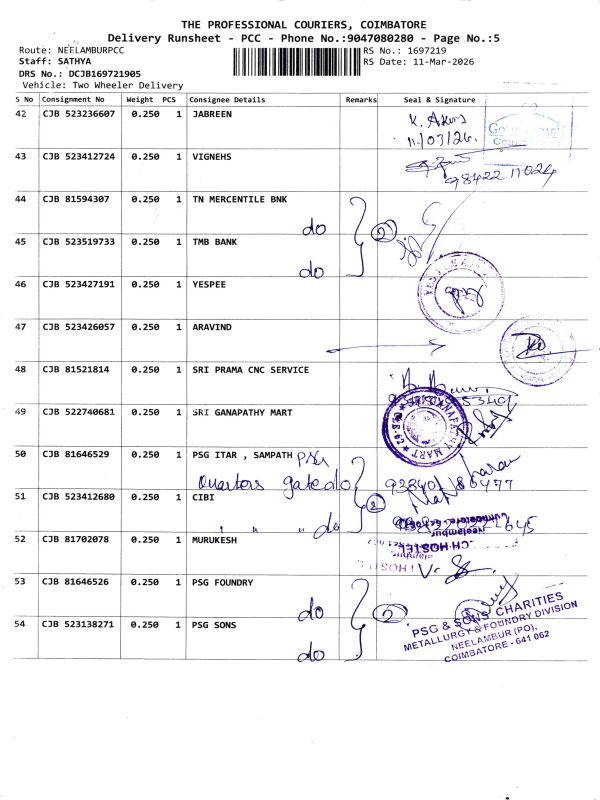 THE PROFESSIONAL COURIERS, COIMBATORE
Delivery Runsheet - PCC - Phone No.:9047080280 - Page No.:5
Route: NEELAMBURPCC
RS No.: 1697219
Staff: SATHYA
RS Date: 11-Mar-2026
DRS No.: DCJB169721905
Vehicle: Two Wheeler Delivery
S No Consignment No Weight PCS Consignee Details Remarks Seal & Signature
42 CJB 523236607 0.250 1 JABREEN
11/03/26.
43 CJB 523412724 0.250 1 VIGNEHS
98422 11024
44 CJB 81594307 0.250 1 TN MERCENTILE BNK
do
2
45 CJB 523519733 0.250 1 TMB BANK
do
46 CJB 523427191 0.250 1 YESPEE
47 CJB 523426057 0.250 1 ARAVIND
48 CJB 81521814 0.250 1 SRI PRAMA CNC SERVICE
49 CJB 522740681 0.250 1 SRI GANAPATHY MART
50 CJB 81646529 0.250 1 PSG ITAR , SAMPATH PSG
Quarters gate do
2
51 CJB 523412680 0.250 1 CIBI
" " do
52 CJB 81702078 0.250 1 MURUKESH
53 CJB 81646526 0.250 1 PSG FOUNDRY
do
2
54 CJB 523138271 0.250 1 PSG SONS
do
PSG & SONS' CHARITIES
METALLURGY & FOUNDRY DIVISION
NEELAMBUR (PO),
COIMBATORE - 641 062